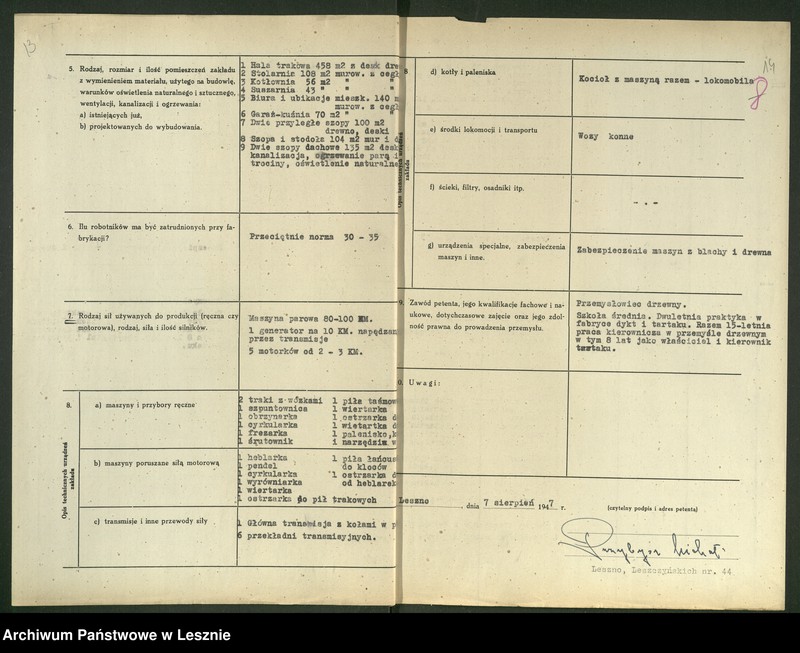 13
5. Rodzaj, rozmiar i ilość pomieszczeń zakładu
z wymienieniem materiału, użytego na budowlę,
warunków oświetlenia naturalnego i sztucznego,
wentylacji, kanalizacji i ogrzewania:
a) istniejących już,
b) projektowanych do wybudowania.
1 Hala trakowa 458 m2 z desk drew
2 Stolarnia 108 m2 murow. z cegł
3 Kotłownia 56 m2 " "
4 Suszarnia 43 " " "
5 Biura i ubikacje mieszk. 140 m
murow. z cegł
6 Garaż-kuźnia 70 m2 " "
7 Dwie przyległe szopy 100 m2
drewno, deski
8 Szopa i stodoła 104 m2 mur i d
9 Dwie szopy dachowe 135 m2 desk
kanalizacja, ogrzewanie parą i
trociny, oświetlenie naturalne
6. Ilu robotników ma być zatrudnionych przy fa-
brykacji?
Przeciętnie norma 30 - 35
7. Rodzaj sił używanych do produkcji (ręczna czy
motorowa), rodzaj, siła i ilość silników.
Maszyna parowa 80-100 KM.
1 generator na 10 KM. napędzan
przez transmisje
5 motorków od 2 - 3 KM.
8.
Opis technicznych urządzeń
zakładu
a) maszyny i przybory ręczne
2 traki z wózkami 1 piła taśmow
1 szpuntownica 1 wiertarka
1 obrzynarka 1 ostrzarka d
1 cyrkularka 1 wietartka d
1 frezarka 1 palenisko,k
1 śrutownik i narzędzia w
b) maszyny poruszane siłą motorową
1 heblarka 1 piła łańcus
1 pendel do kloców
1 cyrkularka 1 ostrzarka d
1 wyrówniarka od heblarek
1 wiertarka
1 ostrzarka do pił trakowych
c) transmisje i inne przewody siły
1 Główna transmisja z kołami w p
6 przekładni transmisyjnych.
14
8
8
Opis technicznych urządzeń
zakładu
d) kotły i paleniska
Kocioł z maszyną razem - lokomobila
e) środki lokomocji i transportu
Wozy konne
f) ścieki, filtry, osadniki itp.
- . -
g) urządzenia specjalne, zabezpieczenia
maszyn i inne.
Zabezpieczenie maszyn z blachy i drewna
9. Zawód petenta, jego kwalifikacje fachowe i na-
ukowe, dotychczasowe zajęcie oraz jego zdol-
ność prawna do prowadzenia przemysłu.
Przemysłowiec drzewny.
Szkoła średnia. Dwuletnia praktyka w
fabryce dykt i tartaku. Razem 15-letnia
praca kierownicza w przemyśle drzewnym
w tym 8 lat jako właściciel i kierownik
tartaku.
0. Uwagi:
Leszno, dnia 7 sierpień 1947 r.
(czytelny podpis i adres petenta)
Leszno, Leszczyńskich nr. 44
Archiwum Państwowe w Lesznie